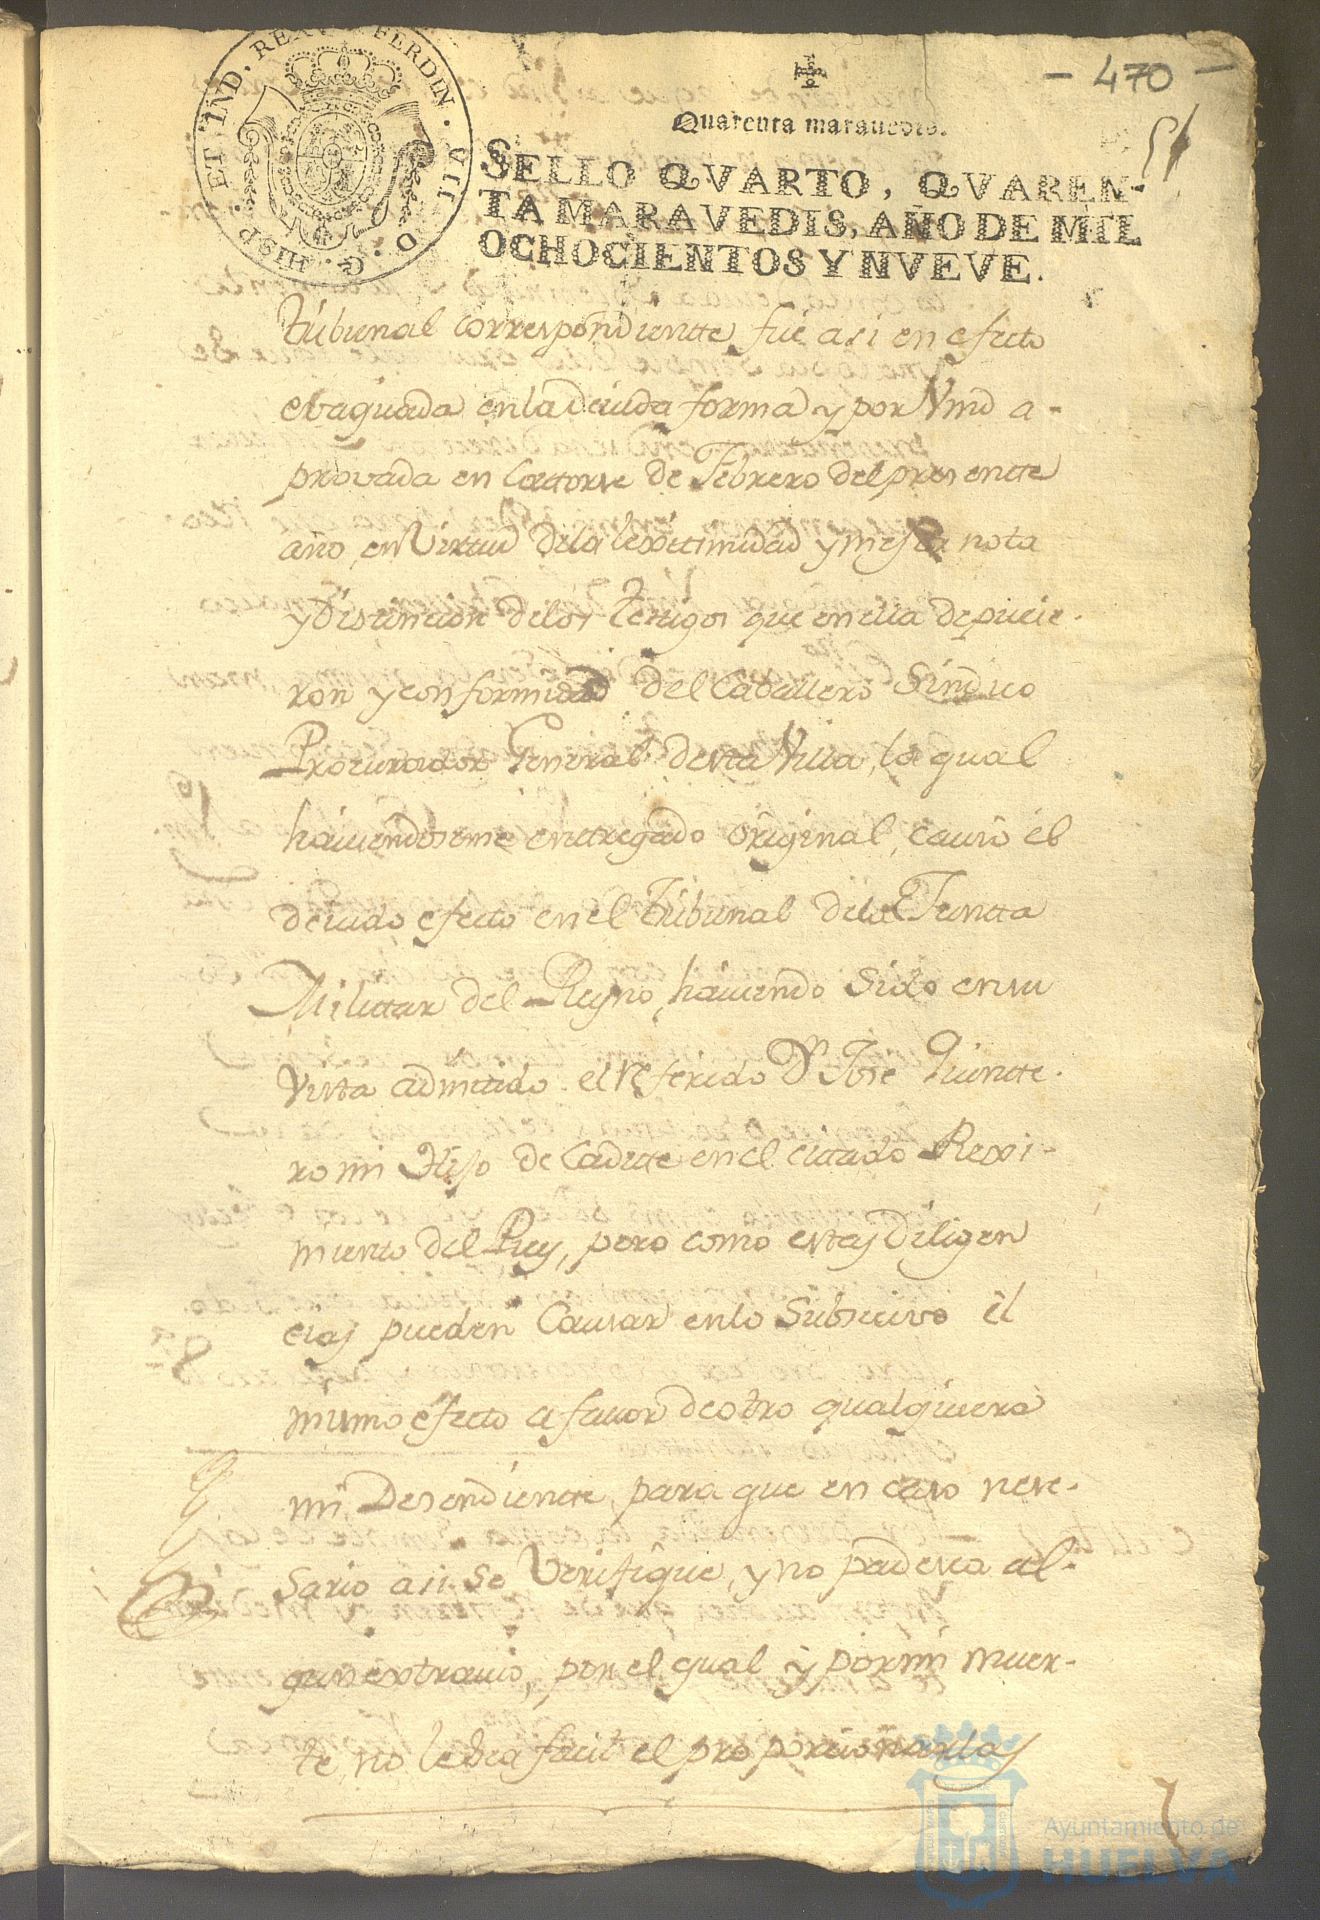 - 470 -
51
Quarenta maravedis.
SELLO QVARTO, QVAREN-
TA MARAVEDIS, AÑO DE MIL
OCHOCIENTOS Y NVEVE.
FERDIN. VII D. G. HISP. ET IND. REX
tribunal correspondientte, fué asi en efecto
ebaquada en la devida forma y por Vmd a-
provada en Cattorse de Febrero del presentte
año, en Virtud de la lexitimidad y mejor nota
y Distincion de los Testigos que en ella depucie-
ron y conformidad del Caballero Sindico
Procurador General desta Villa, la qual
haviendoseme enttregado original, causó el
devido efecto en el tribunal de la Juntta
Militar del Reyno, haviendo Sido en su
Vista admitido el referido Dn. Jose Quintte-
ro mi Hijo de Cadette en el citado Rexi-
miento del Rey, pero como estas Diligen
cias pueden Causar en lo Subsecivo el
mismo efecto a favor de otro qualquiera
mi Desendientte, para que en caso nese-
Sario asi se Verifique, y no padesca al-
gun extravio, por el qual y por mi muer-
te, no le sea facil el proporcionarlas
Ayuntamiento de
HUELVA